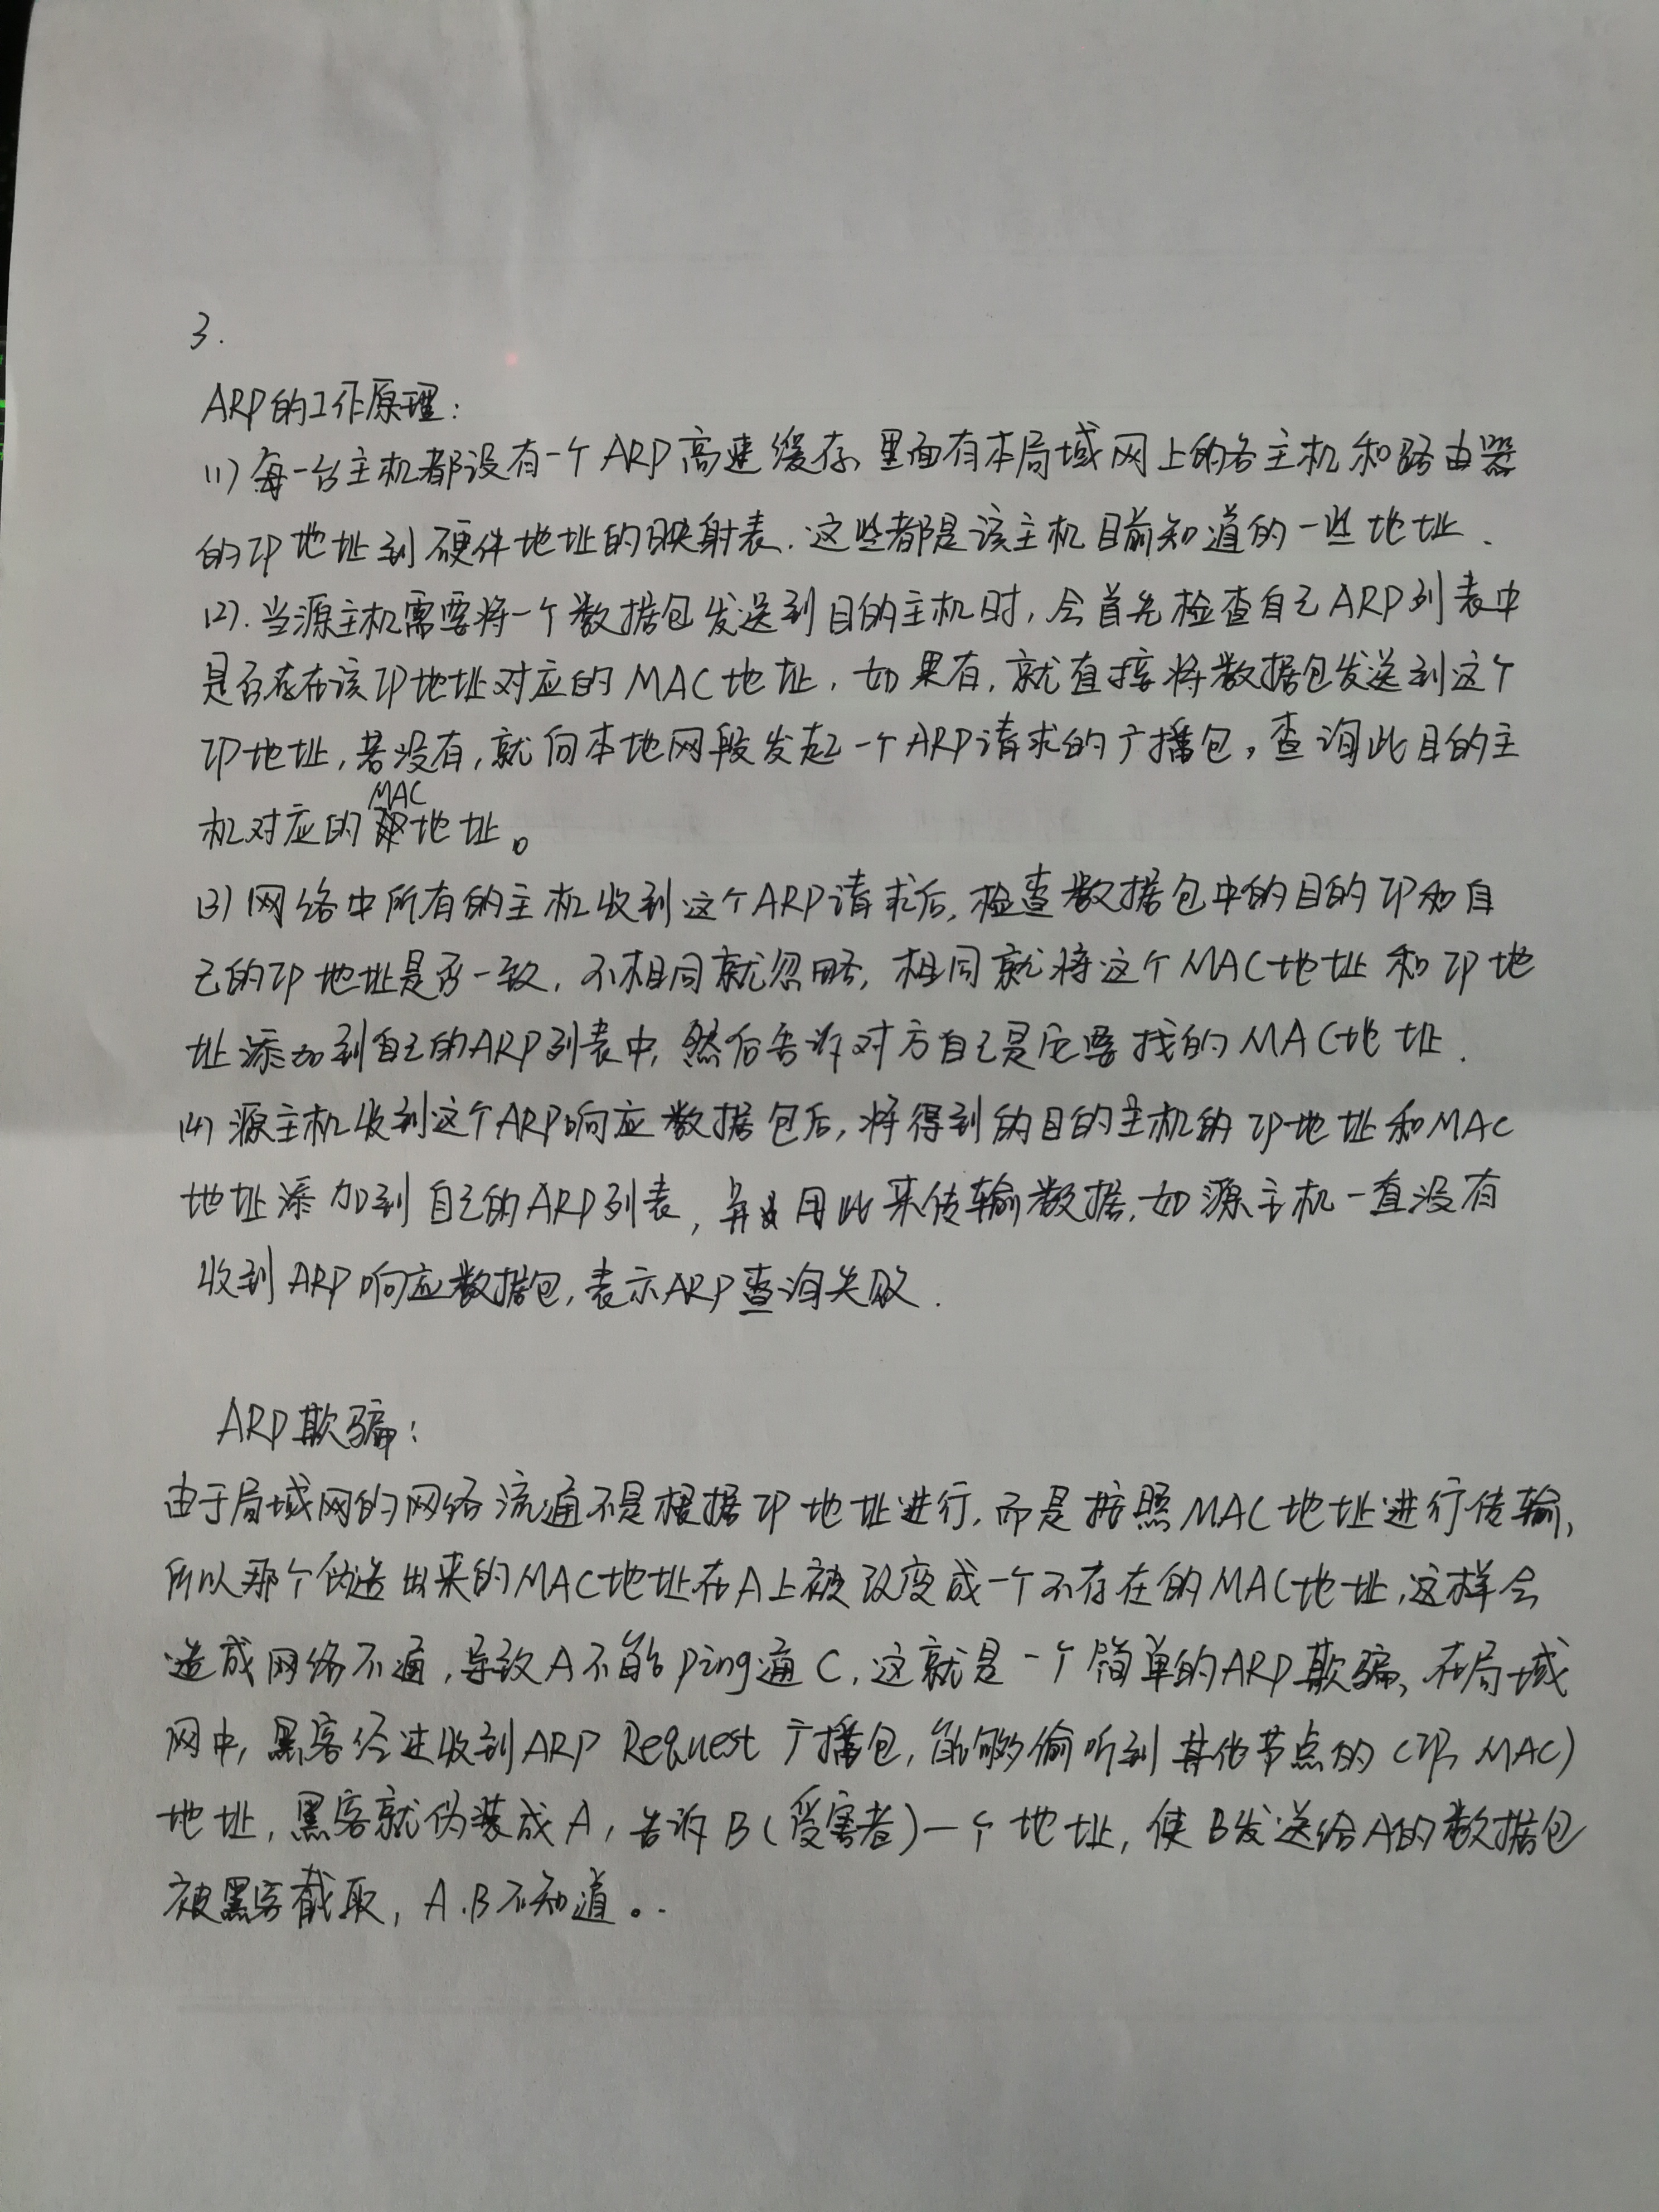 3.
ARP的工作原理:
(1) 每一台主机都设有一个ARP高速缓存,里面有本局域网上的各主机和路由器
的IP地址到硬件地址的映射表.这些都是该主机目前知道的一些地址.
(2).当源主机需要将一个数据包发送到目的主机时,会首先检查自己ARP列表中
是否存在该IP地址对应的MAC地址,如果有,就直接将数据包发送到这个
IP地址,若没有,就向本地网段发起一个ARP请求的广播包,查询此目的主
机对应的MAC地址。
(3) 网络中所有的主机收到这个ARP请求后,检查数据包中的目的IP和自
己的IP地址是否一致,不相同就忽略,相同就将这个MAC地址和IP地
址添加到自己的ARP列表中,然后告诉对方自己是它要找的MAC地址.
(4) 源主机收到这个ARP响应数据包后,将得到的目的主机的IP地址和MAC
地址添加到自己的ARP列表,并用此来传输数据,如源主机一直没有
收到ARP响应数据包,表示ARP查询失败.
ARP欺骗:
由于局域网的网络流通不是根据IP地址进行,而是按照MAC地址进行传输,
所以那个伪造出来的MAC地址在A上被改变成一个不存在的MAC地址,这样会
造成网络不通,导致A不能Ping通C,这就是一个简单的ARP欺骗,在局域
网中,黑客经过收到ARP Request广播包,能够偷听到其他节点的(IP, MAC)
地址,黑客就伪装成A,告诉B(受害者)一个地址,使B发送给A的数据包
被黑客截取,A.B不知道。.